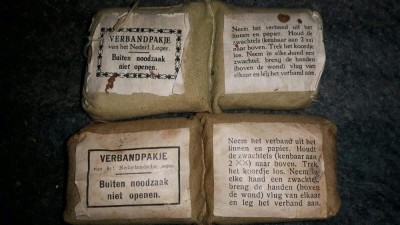 VERBANDPAKJE
van het Nederl. Leger.
Buiten noodzaak
niet openen.
Neem het verband uit het
linnen en papier. Houd de
zwachtels (kenbaar aan 2
naar boven. Trek het koordje
los. Neem in elke hand een
zwachtel, breng de handen
(boven de wond) vlug van
elkaar en leg het verband aan.
VERBANDPAKJE
van het Nederlandsche
Buiten noodzaak
niet openen.
Neem het verband uit het
linnen en papier. Houdt
de zwachtels (kenbaar aan
2 XX) naar boven. Trek
het koordje los. Neem in
elke hand een zwachtel,
breng de handen (boven
de wond) vlug van elkaar
en leg het verband aan.